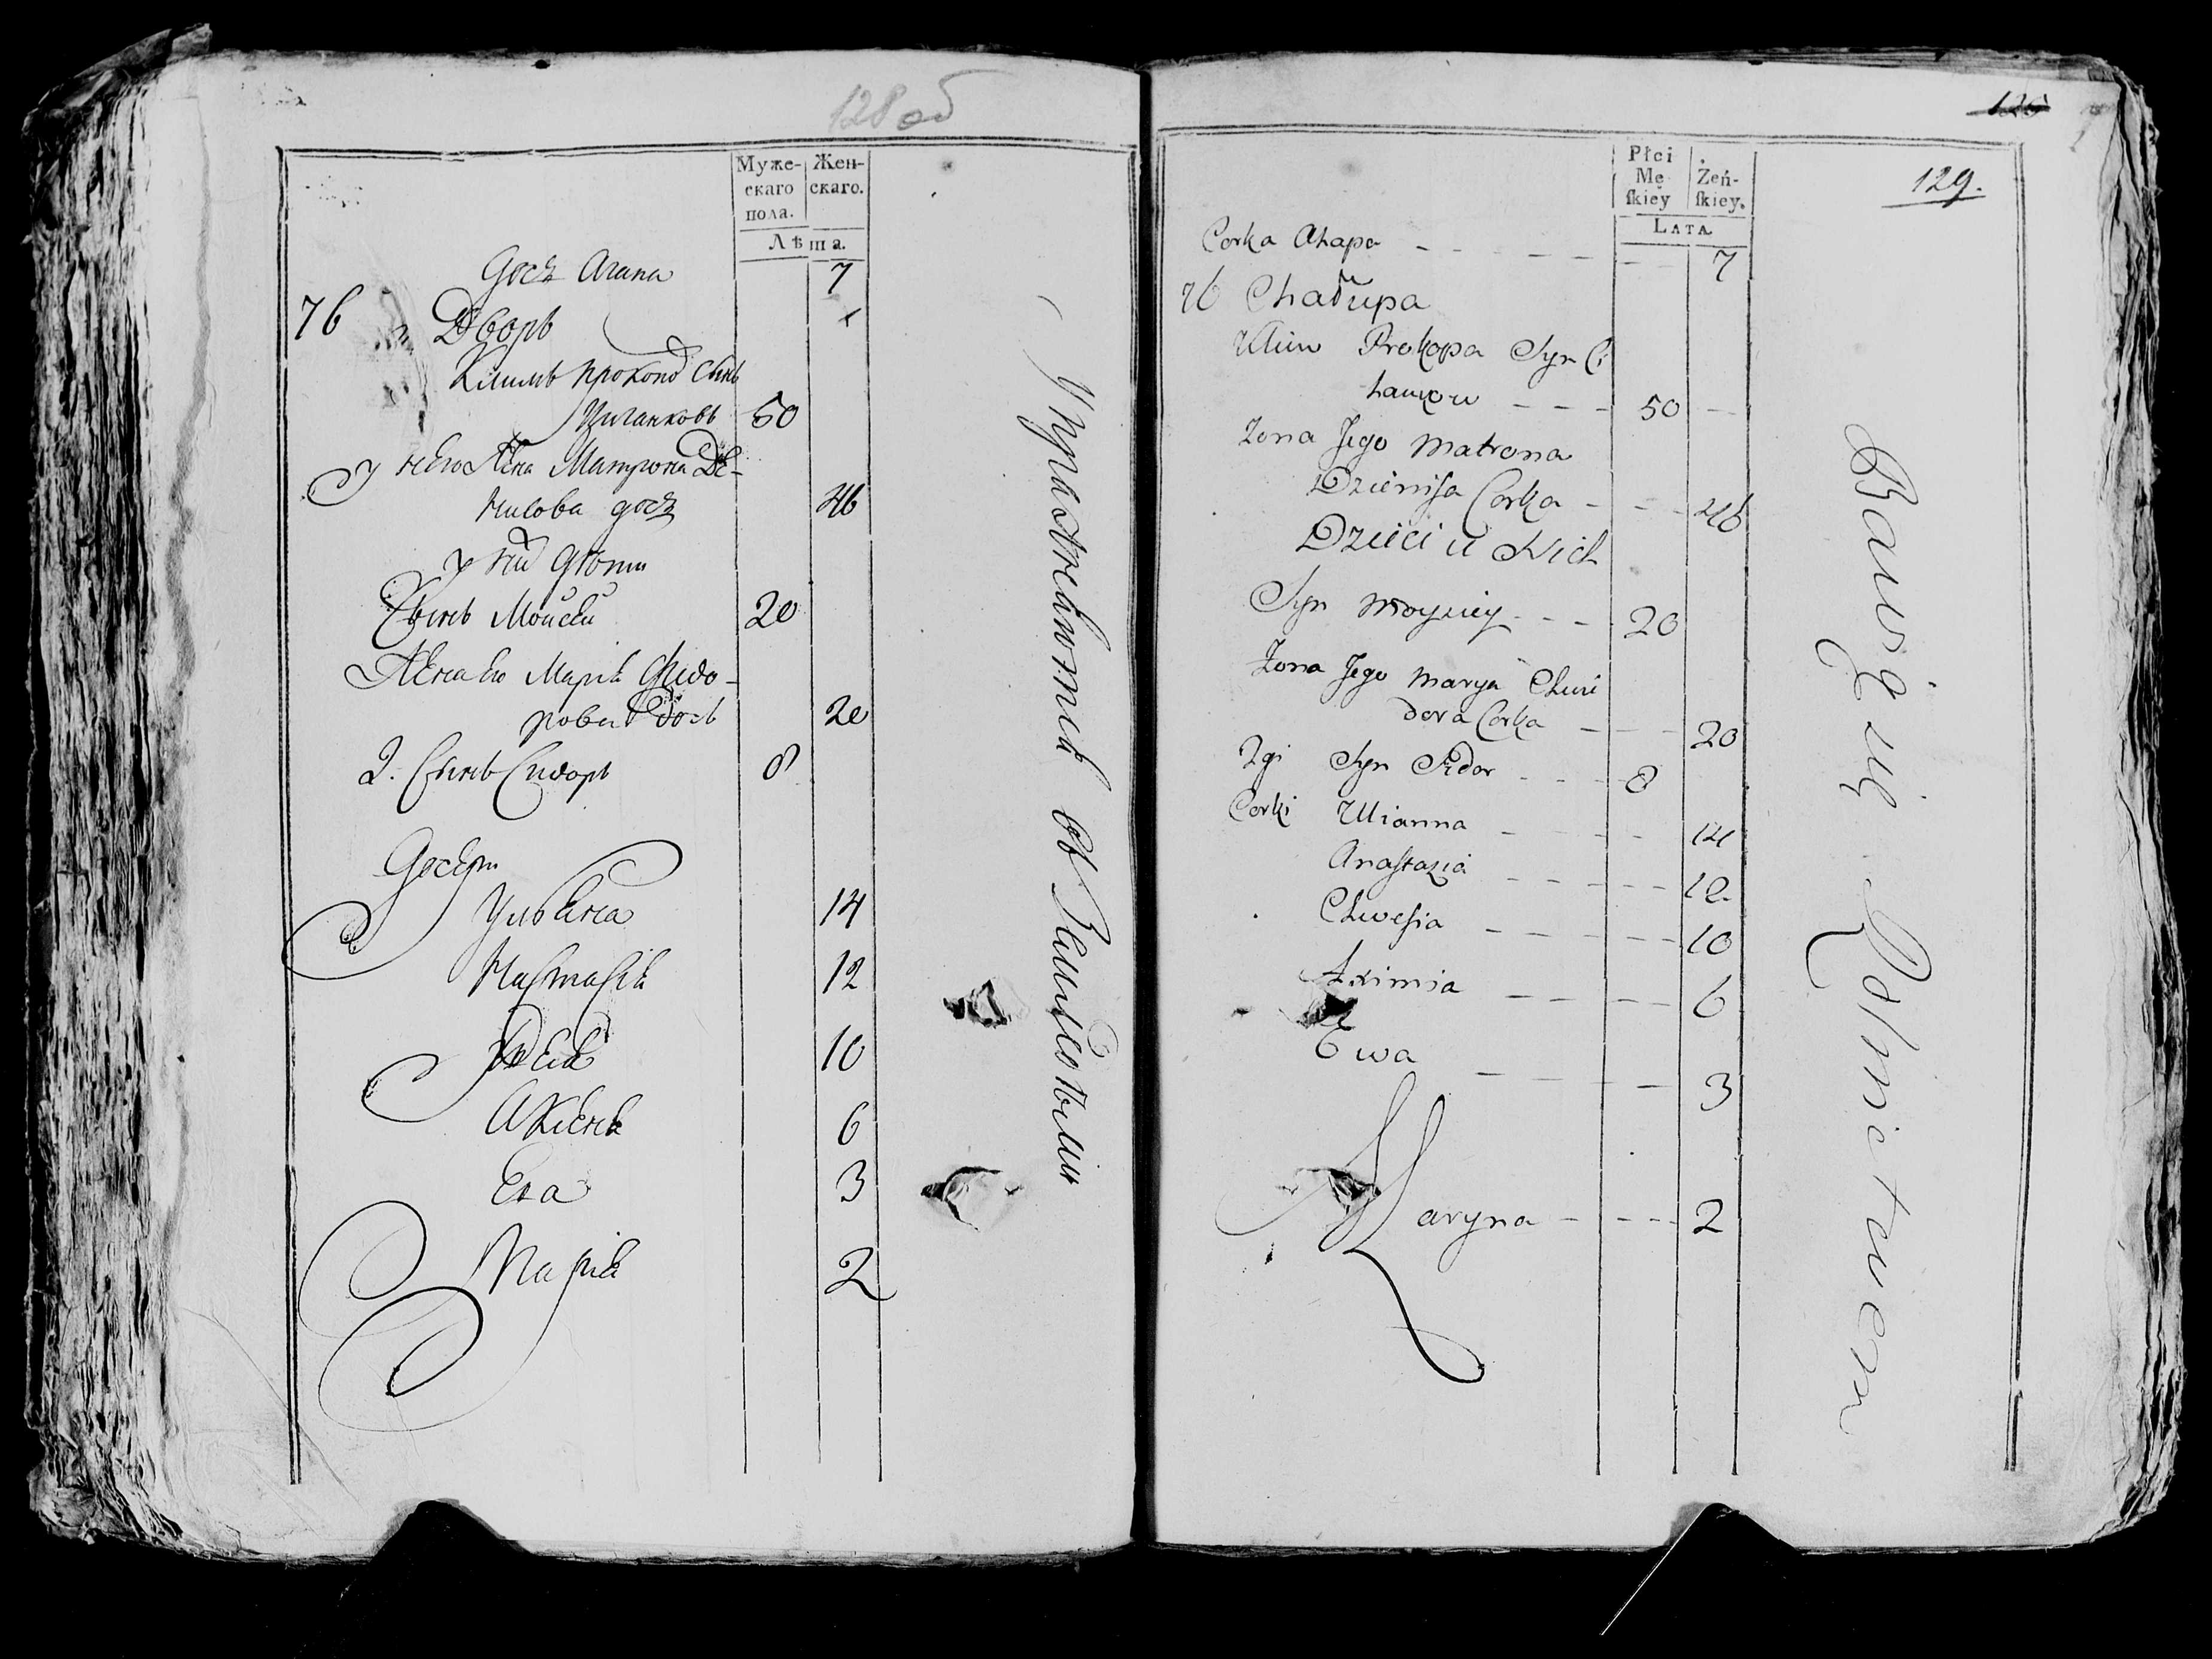 128 об
Муже-
скаго
пола.
Жен-
скаго.
Лѣта.
Дочь Агапа 7
76 Дворъ
Климъ Прокопо Сынъ
Цыганковъ 50
У него Жена Матрона Де-
нисова дочь 46
у ни дѣти
Сынъ Мойсей 20
Жена Его Марія Фидо-
рова дочь 20
2. Сынъ Сидоръ 8
Дочери
Ульяна 14
Настасія 12
10
Аксенья 6
Ева 3
Марія 2
Упражняются въ Земледѣліи
126
129.
Płci
Mę
skiey
Żeń-
skiey.
LATA
Corka Ahapa 7
76 Chałupa
Klim Prokopa Syn Ci
hankow 50
Zona Jego Matrona
Dzienisa Corka 46
Dzieci u Nich
Syn Moyziey 20
Zona Jego Marya Chwi
dora Corka 20
2gi Syn Sidor 8
Corki Ulianna 14
Anastazia 12
Chwesia 10
Axinia 6
Ewa 3
Maryna 2
Bawią się Rolnictwem